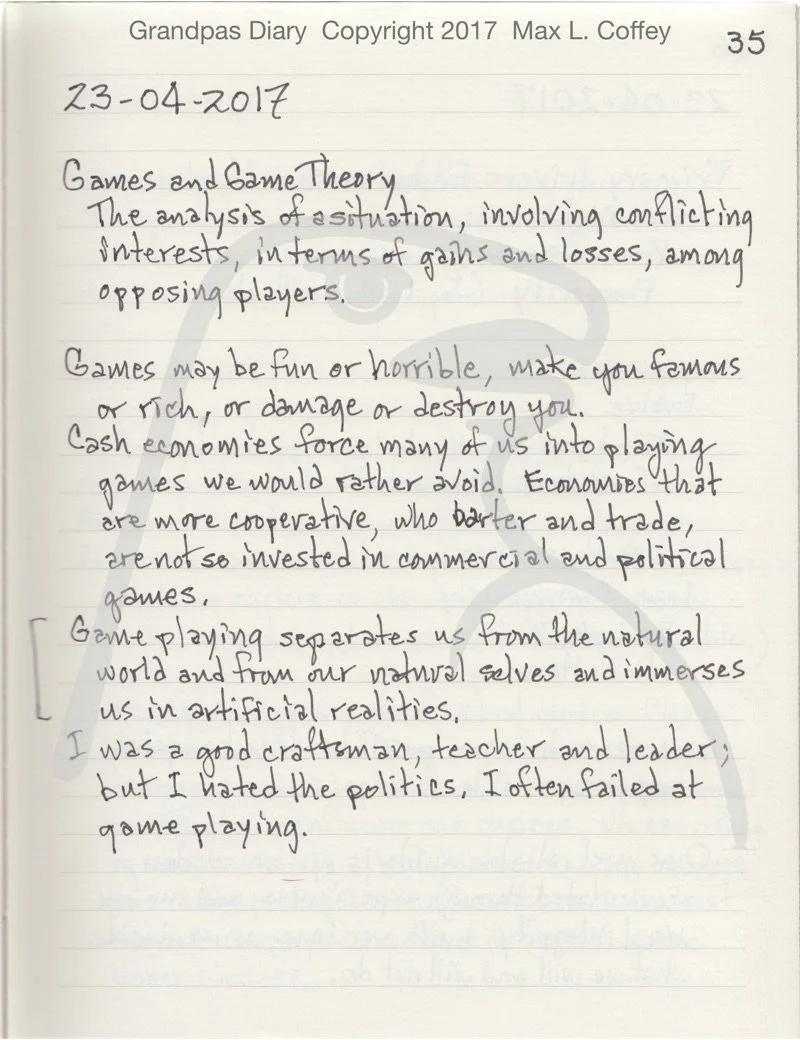 Grandpas Diary Copyright 2017 Max L. Coffey
35
23-04-2017
Games and Game Theory
The analysis of a situation, involving conflicting
interests, in terms of gains and losses, among
opposing players.
Games may be fun or horrible, make you famous
or rich, or damage or destroy you.
Cash economies force many of us into playing
games we would rather avoid. Economies that
are more cooperative, who barter and trade,
are not so invested in commercial and political
games.
Game playing separates us from the natural
world and from our natural selves and immerses
us in artificial realities.
I was a good craftsman, teacher and leader;
but I hated the politics. I often failed at
game playing.